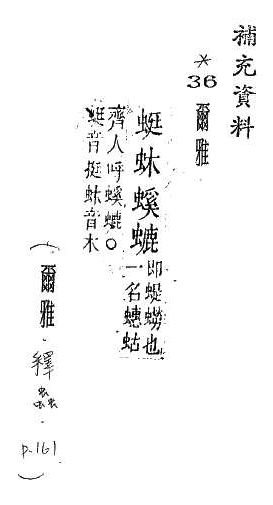 補充資料
*36 爾雅
蜓蚞螇螰
即蝭蟧也
一名蟪蛄
齊人呼螇螰○
蜓音挺蚞音木
(爾雅.釋蟲 p.161)